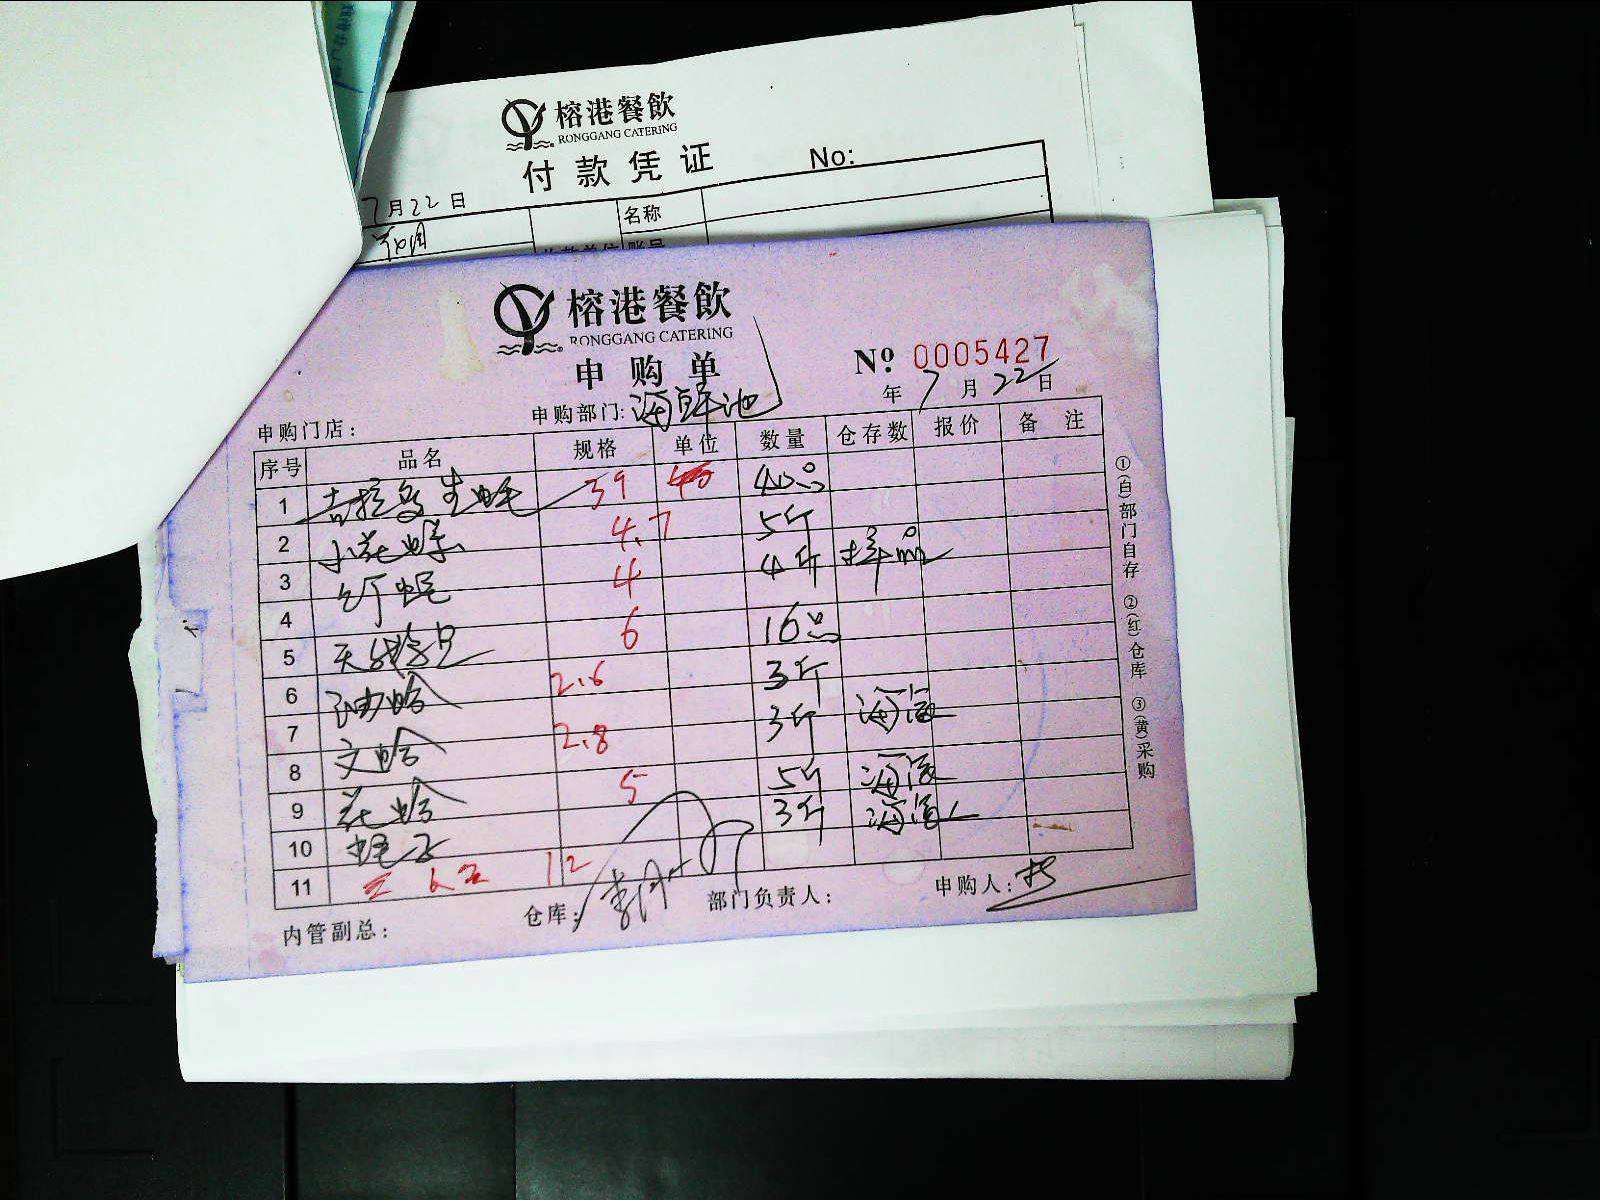 榕港餐飲
RONGGANG CATERING
付款凭证 No:
7月22日
名称
账号
榕港餐飲
RONGGANG CATERING
申购单
Nº 0005427
年 7 月 22 日
申购门店: 申购部门: 海鲜池
序号 品名 规格 单位 数量 仓存数 报价 备注
1 吉拉多生蚝 39 40只
2 小花螺 4.7 5斤
3 竹蛏 4 4斤 样品
4 6 16只
5 天使 3斤
6 油蛤 2.6
7 3斤
8 文蛤 2.8 5斤
9 花蛤 5 3斤
10 蛏子
11 12
内管副总: 仓库: 部门负责人: 申购人:
①(白)部门自存 ②(红)仓库 ③(黄)采购